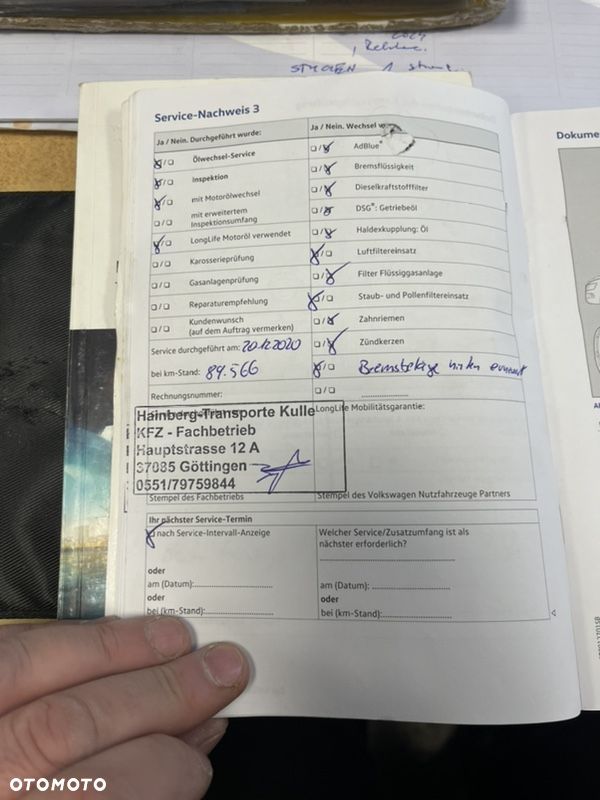 2024
, Reklam.
STYCZEŃ 1
Service-Nachweis 3
Ja / Nein. Durchgeführt wurde:
Ölwechsel-Service
Inspektion
mit Motorölwechsel
mit erweitertem
Inspektionsumfang
LongLife Motoröl verwendet
Karosserieprüfung
Gasanlagenprüfung
Reparaturempfehlung
Kundenwunsch
(auf dem Auftrag vermerken)
Service durchgeführt am: 20.12.2020
bei km-Stand: 89.566
Rechnungsnummer:
Ja / Nein. Wechsel
AdBlue®
Bremsflüssigkeit
Dieselkraftstofffilter
DSG®: Getriebeöl
Haldexkupplung: Öl
Luftfiltereinsatz
Filter Flüssiggasanlage
Staub- und Pollenfiltereinsatz
Zahnriemen
Zündkerzen
Bremsbeläge hinten erneuert
Hainberg-Transporte Kulle
KFZ - Fachbetrieb
Hauptstrasse 12 A
37085 Göttingen
0551/79759844
Stempel des Fachbetriebs
LongLife Mobilitätsgarantie:
Stempel des Volkswagen Nutzfahrzeuge Partners
Ihr nächster Service-Termin
nach Service-Intervall-Anzeige
oder
am (Datum):
oder
bei (km-Stand):
Welcher Service/Zusatzumfang ist als
nächster erforderlich?
am (Datum):
oder
bei (km-Stand):
Dokume
OTOMOTO